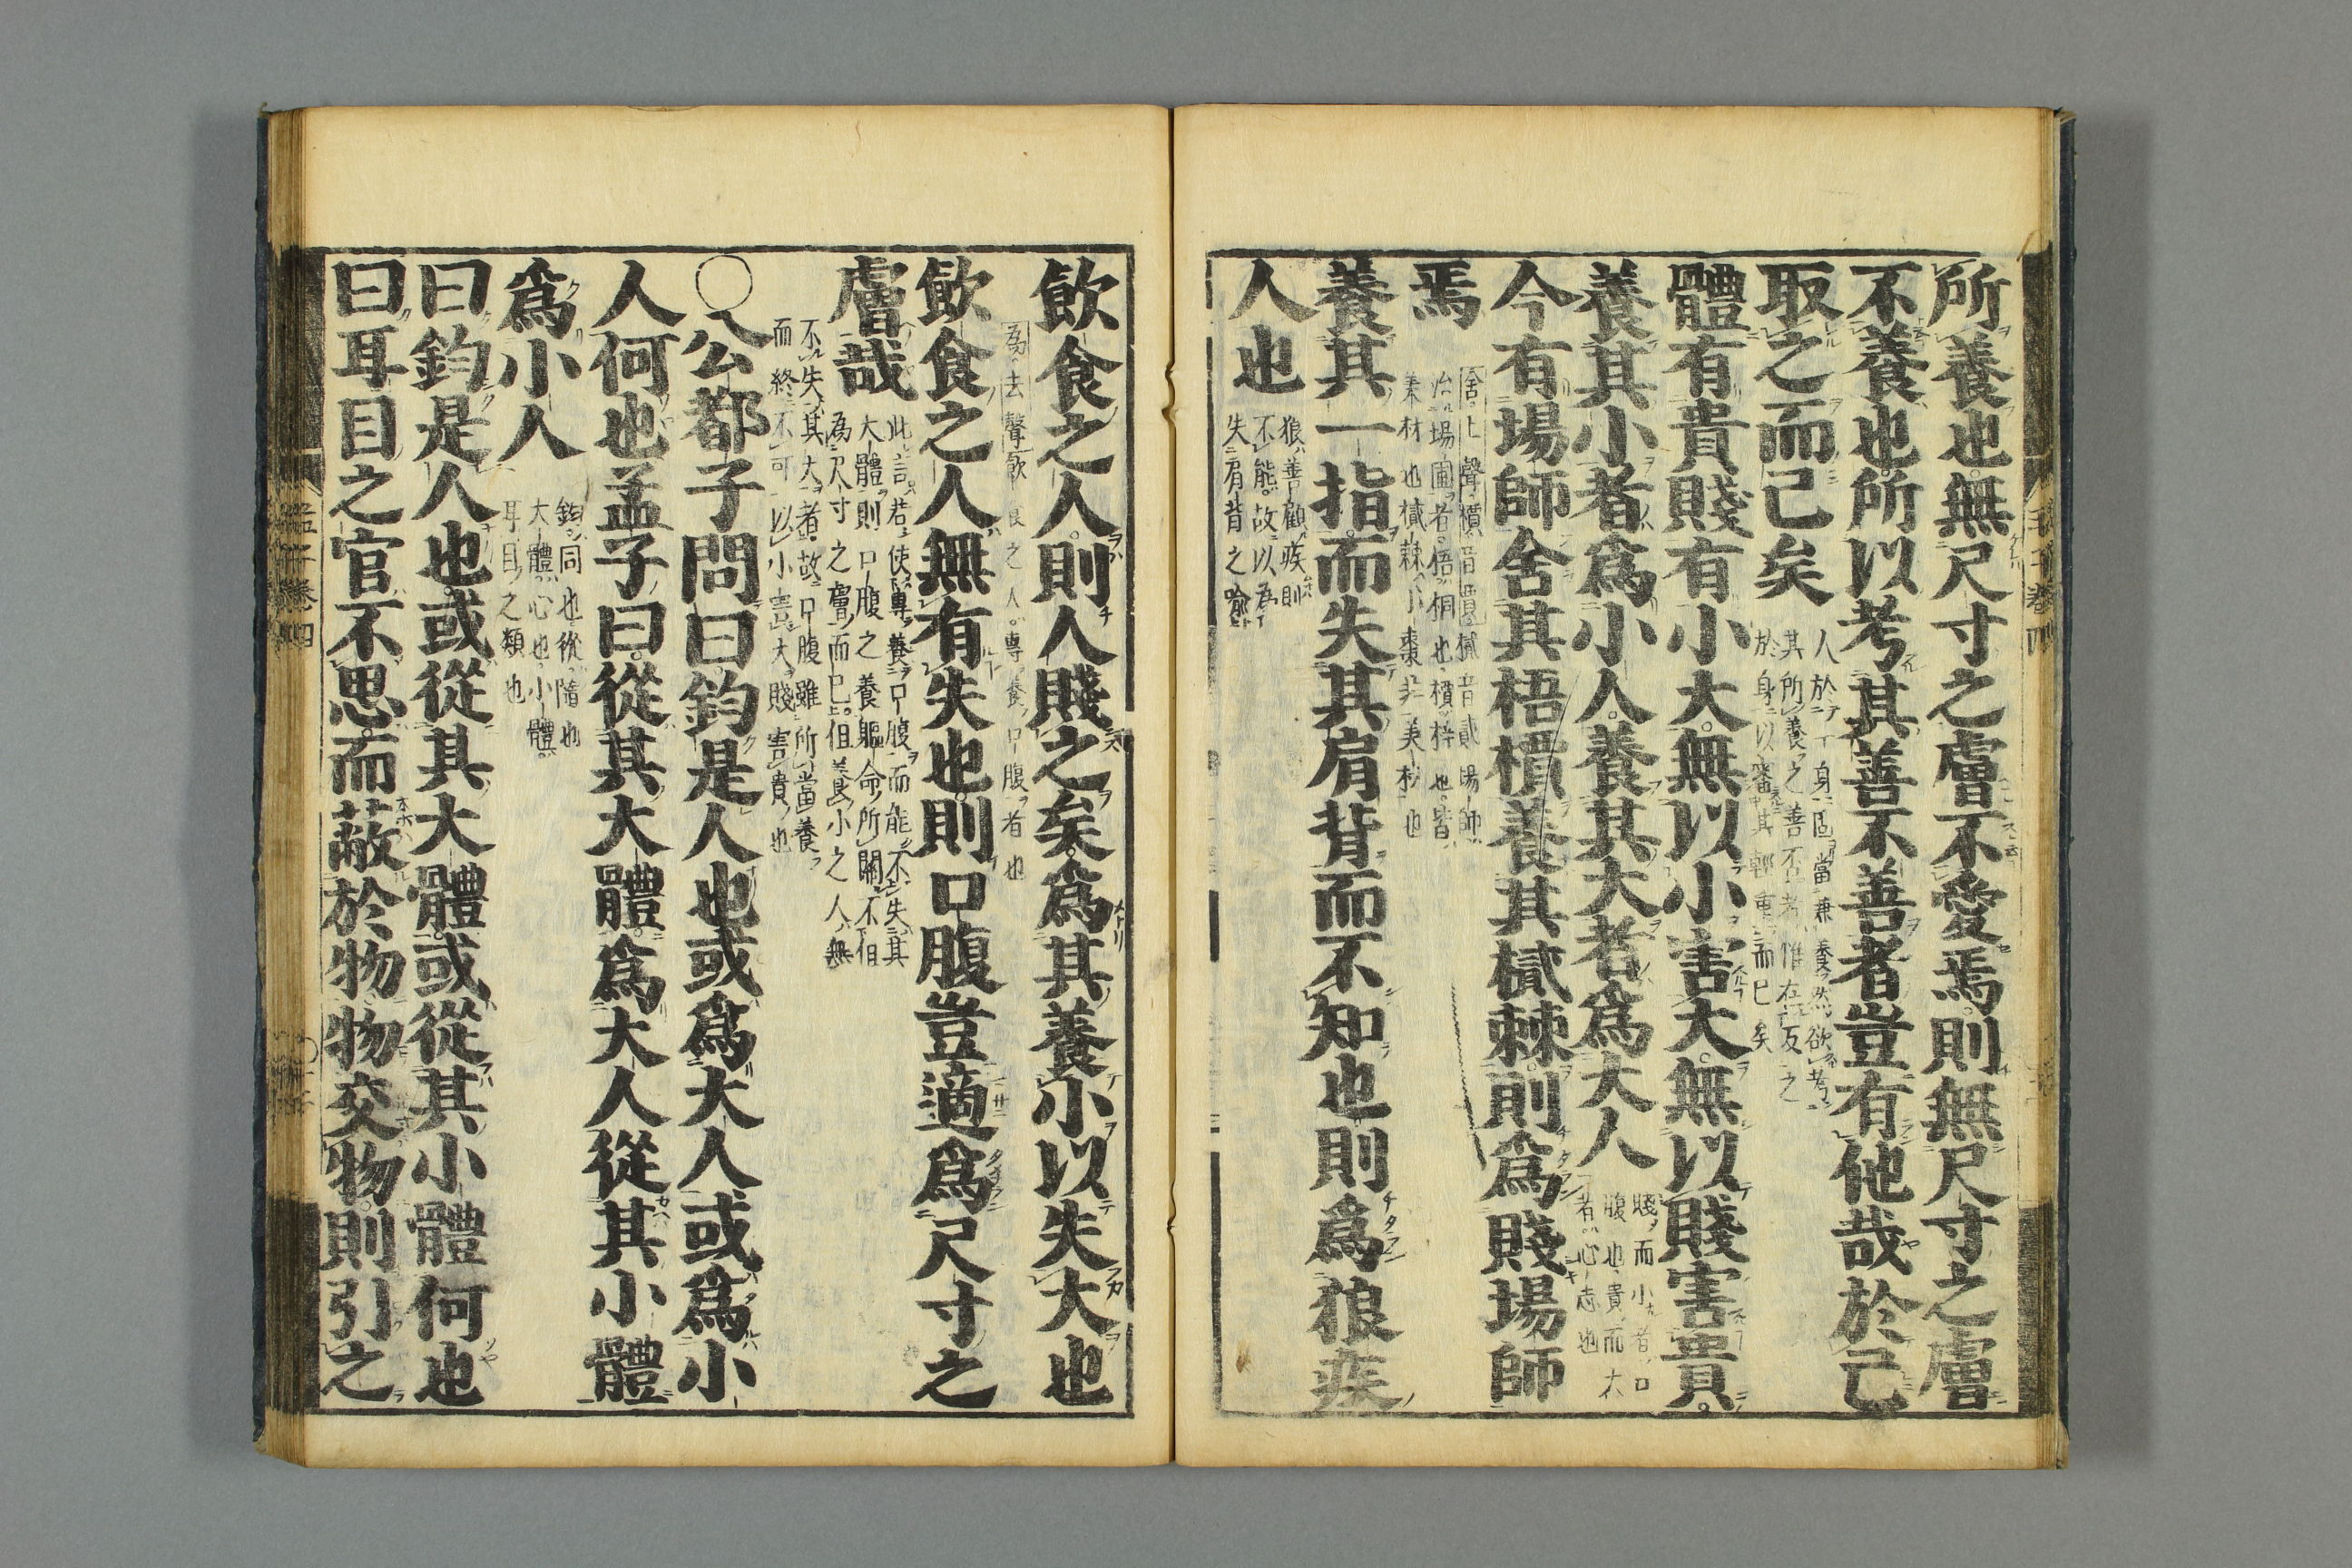 所養也無尺寸之膚不愛焉則無尺寸之膚
不養也所以考其善不善者豈有他哉於己
取之而已矣
人於一身固當兼養然欲考
其所養之善否者惟在反之
於身以審其輕重而已矣
體有貴賤有小大無以小害大無以賤害貴
養其小者爲小人養其大者爲大人
賤而小者口
腹也貴而大
者心志也
今有場師舍其梧檟養其樲棘則爲賤場師
焉
舍上聲檟音賈樲音貳場師
治場圃者梧桐也檟梓也皆
美材也樲棘小棗非美材也
養其一指而失其肩背而不知也則爲狼疾
人也
狼善顧疾則
不能故以為
失肩背之喩
飮食之人則人賤之矣爲其養小以失大也
為去聲飮食之人專養口腹者也
飮食之人無有失也則口腹豈適爲尺寸之
膚哉
此言若使專養口腹而能不失其
大體則口腹之養軀命所關不但
為尺寸之膚而已但養小之人無
不失其大者故口腹雖所當養
而終不可以小害大賤害貴也
○公都子問曰鈞是人也或爲大人或爲小
人何也孟子曰從其大體爲大人從其小體
爲小人
鈞同也從隨也
大體心也小體
耳目之類也
曰鈞是人也或從其大體或從其小體何也
曰耳目之官不思而蔽於物物交物則引之
孟子卷四